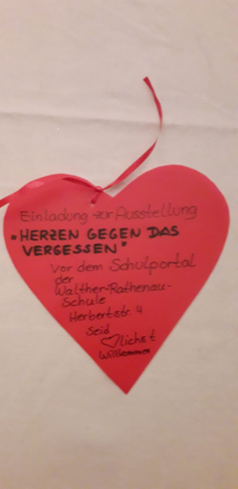 Einladung zur Ausstellung
"HERZEN GEGEN DAS
VERGESSEN"
Vor dem Schulportal
der
Walther-Rathenau-
Schule
Herbertstr. 4
Seid
♡lichst
Willkommen